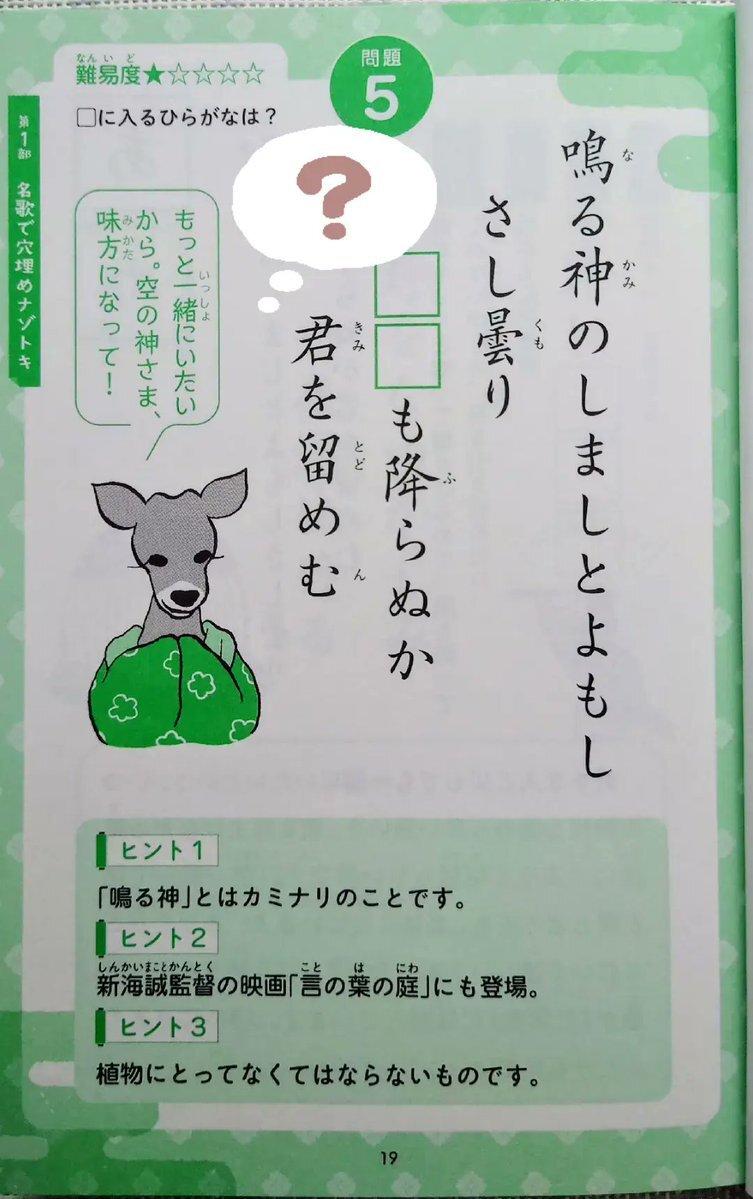 難易度★☆☆☆☆
なんいど
問題
5
□に入るひらがなは？
第1部 名歌で穴埋めナゾトキ
鳴る神のしましとよもし
な
かみ
さし曇り
くも
□□も降らぬか
ふ
君を留めむ
きみ
とど
ん
?
もっと一緒にいたい
いっしょ
から。空の神さま、
味方になって！
みかた
ヒント1
「鳴る神」とはカミナリのことです。
ヒント2
しんかいまことかんとく
こと
は
にわ
新海誠監督の映画「言の葉の庭」にも登場。
ヒント3
植物にとってなくてはならないものです。
19